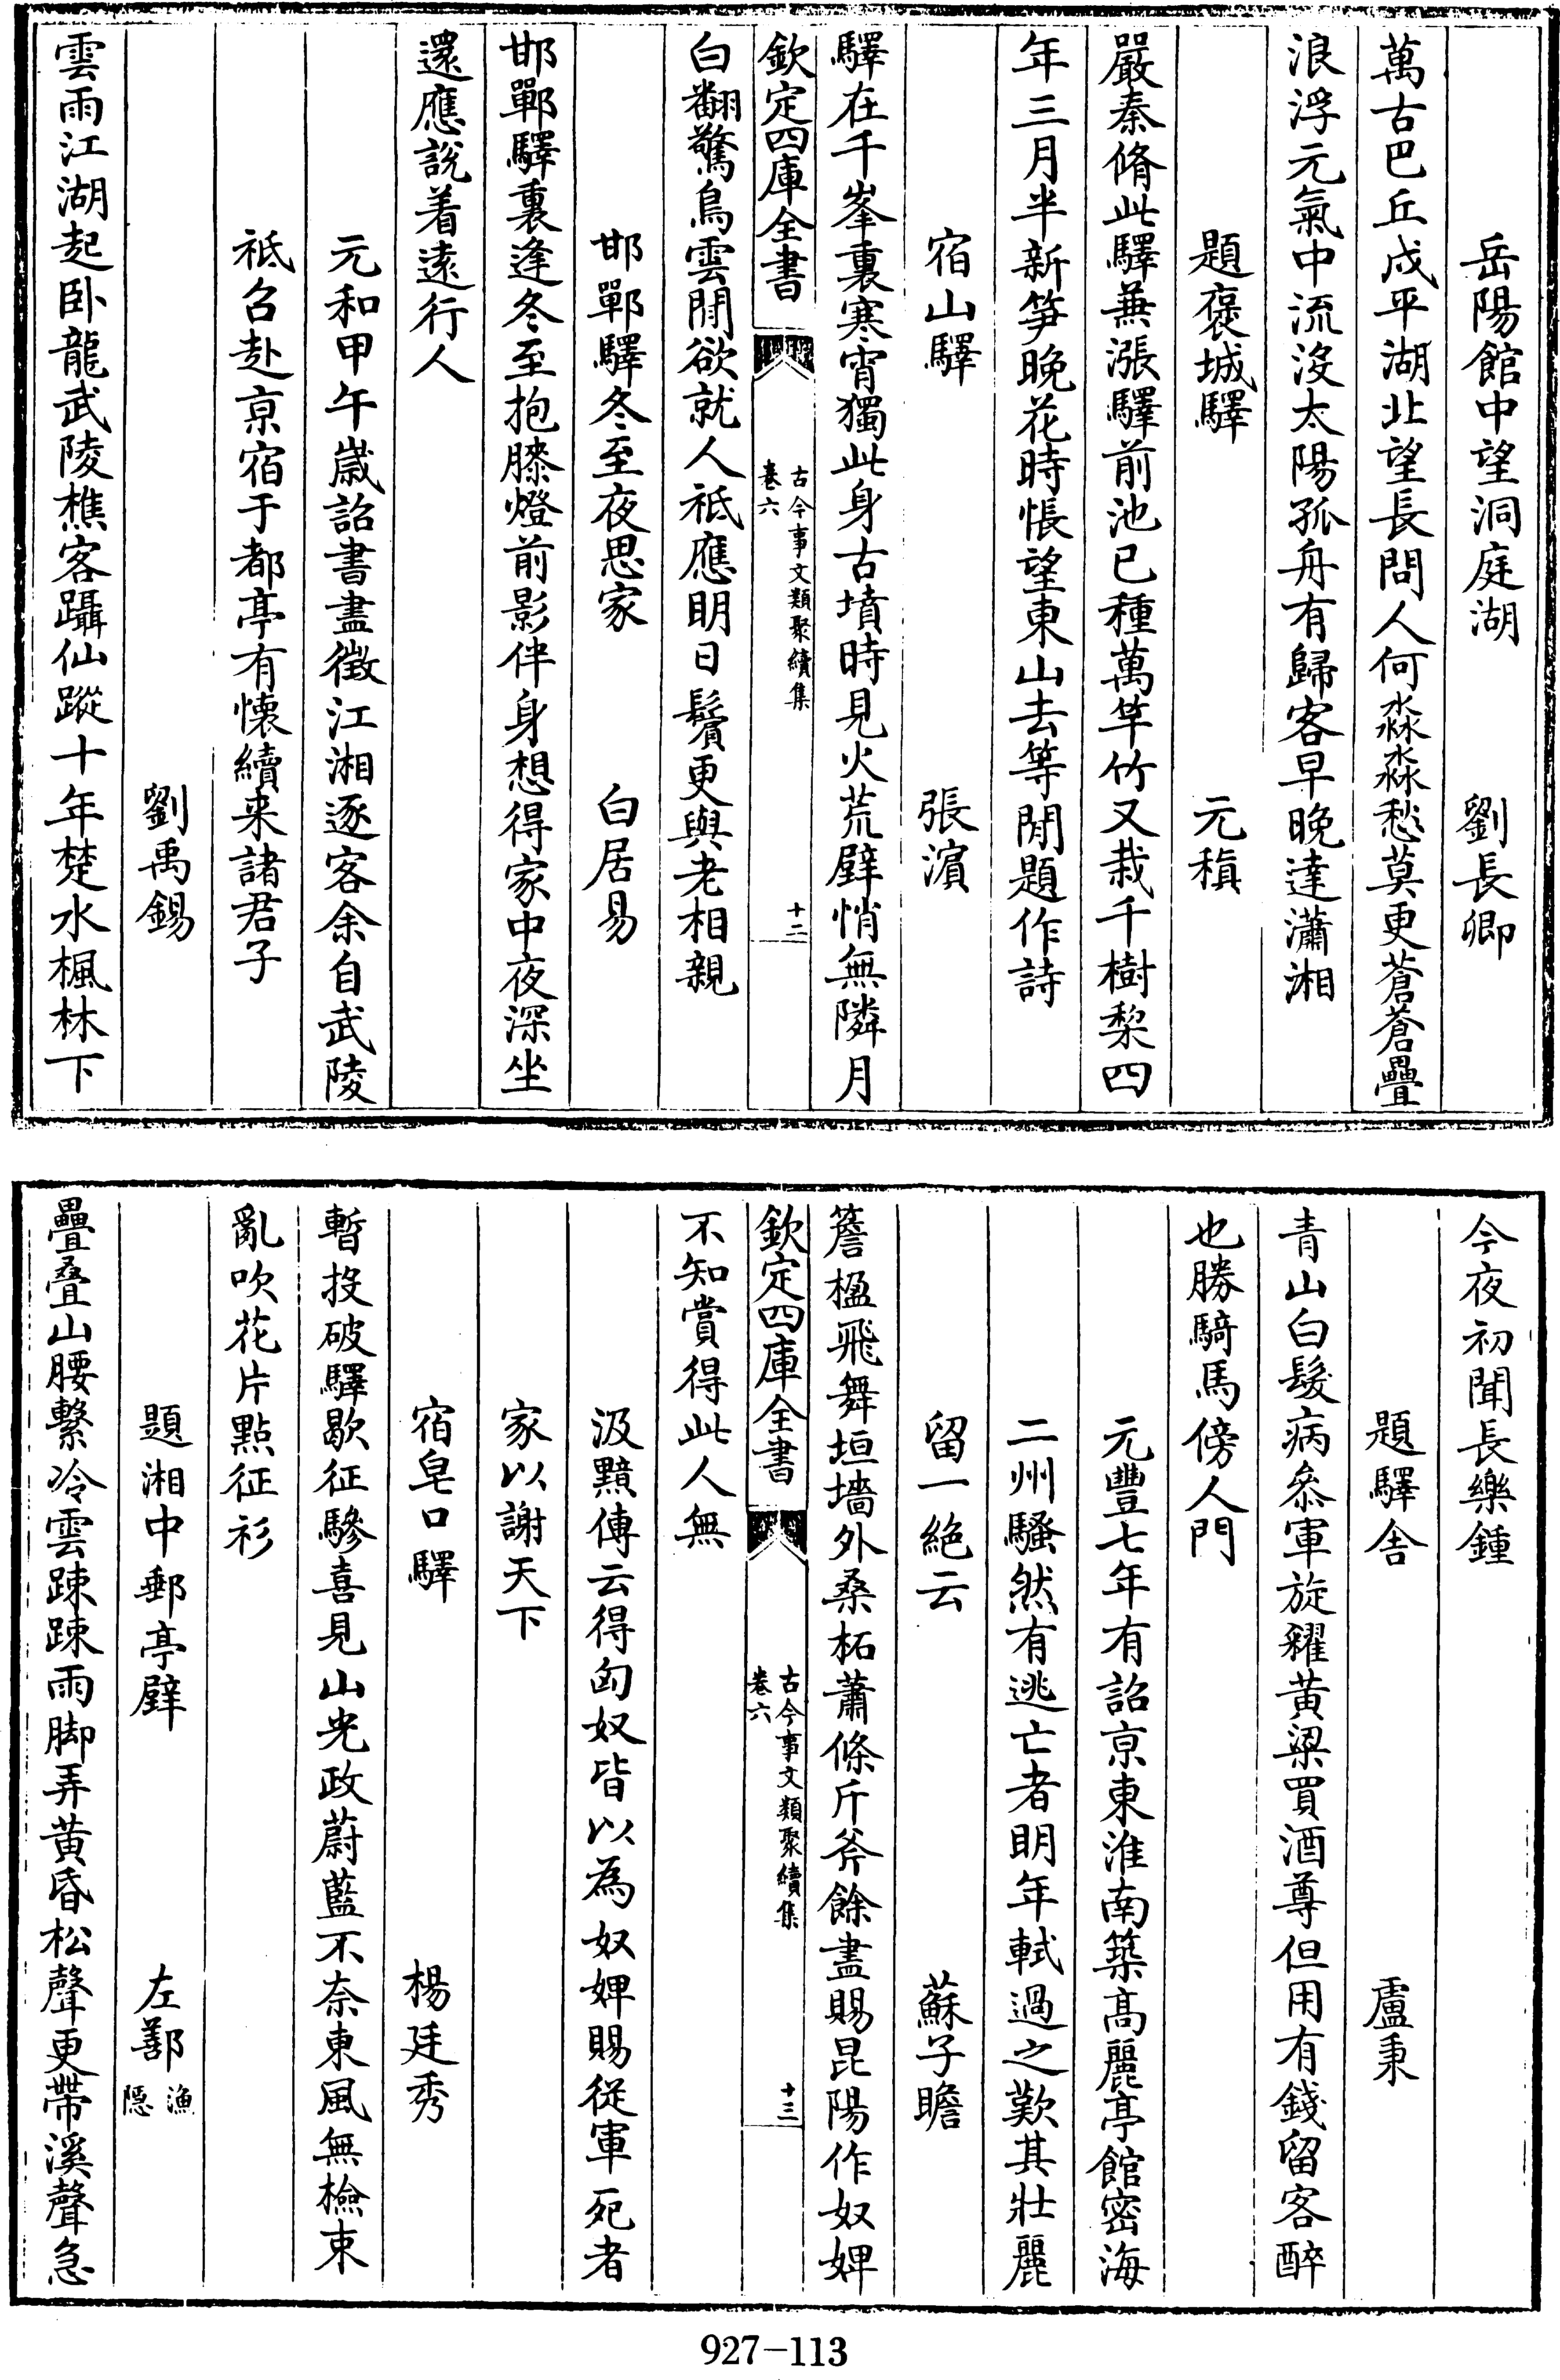 岳陽館中望洞庭湖　劉長卿
萬古巴丘戍平湖北望長問人何淼淼愁莫更蒼蒼疊
浪浮元氣中流没太陽孤舟有歸客早晚達瀟湘
題褒城驛　元稹
嚴秦脩此驛兼漲驛前池已種萬竿竹又栽千樹棃四
年三月半新笋晚花時悵望東山去等閒題作詩
宿山驛　張濵
驛在千峯裏寒宵獨此身古墳時見火荒壁悄無隣月
欽定四庫全書　古今事文類聚續集卷六　十二
白翻驚鳥雲閒欲就人祗應明日鬢更與老相親
邯鄲驛冬至夜思家　白居易
邯鄲驛裏逢冬至抱膝燈前影伴身想得家中夜深坐
還應説着遠行人
元和甲午歲詔書盡徴江湘逐客余自武陵
祗召赴京宿于都亭有懐續来諸君子
劉禹錫
雲雨江湖起卧龍武陵樵客躡仙蹤十年楚水楓林下
今夜初聞長樂鍾
題驛舎　盧秉
青山白髮病叅軍旋糴黄粱買酒尊但用有錢留客醉
也勝騎馬傍人門
元豐七年有詔京東淮南築髙麗亭館密海
二州騷然有逃亡者明年軾過之歎其壯麗
留一絶云　蘇子瞻
簷楹飛舞垣墻外桑柘蕭條斤斧餘盡賜昆陽作奴婢
欽定四庫全書　古今事文類聚續集卷六　十三
不知賞得此人無
汲黯傳云得匈奴皆以為奴婢賜從軍死者
家以謝天下
宿皂口驛　楊廷秀
暫投破驛歇征驂喜見山光政蔚藍不奈東風無檢束
亂吹花片點征衫
題湘中郵亭壁　左鄯漁隠
疊叠山腰繫冷雲踈踈雨脚弄黄昏松聲更帶溪聲急
927-113